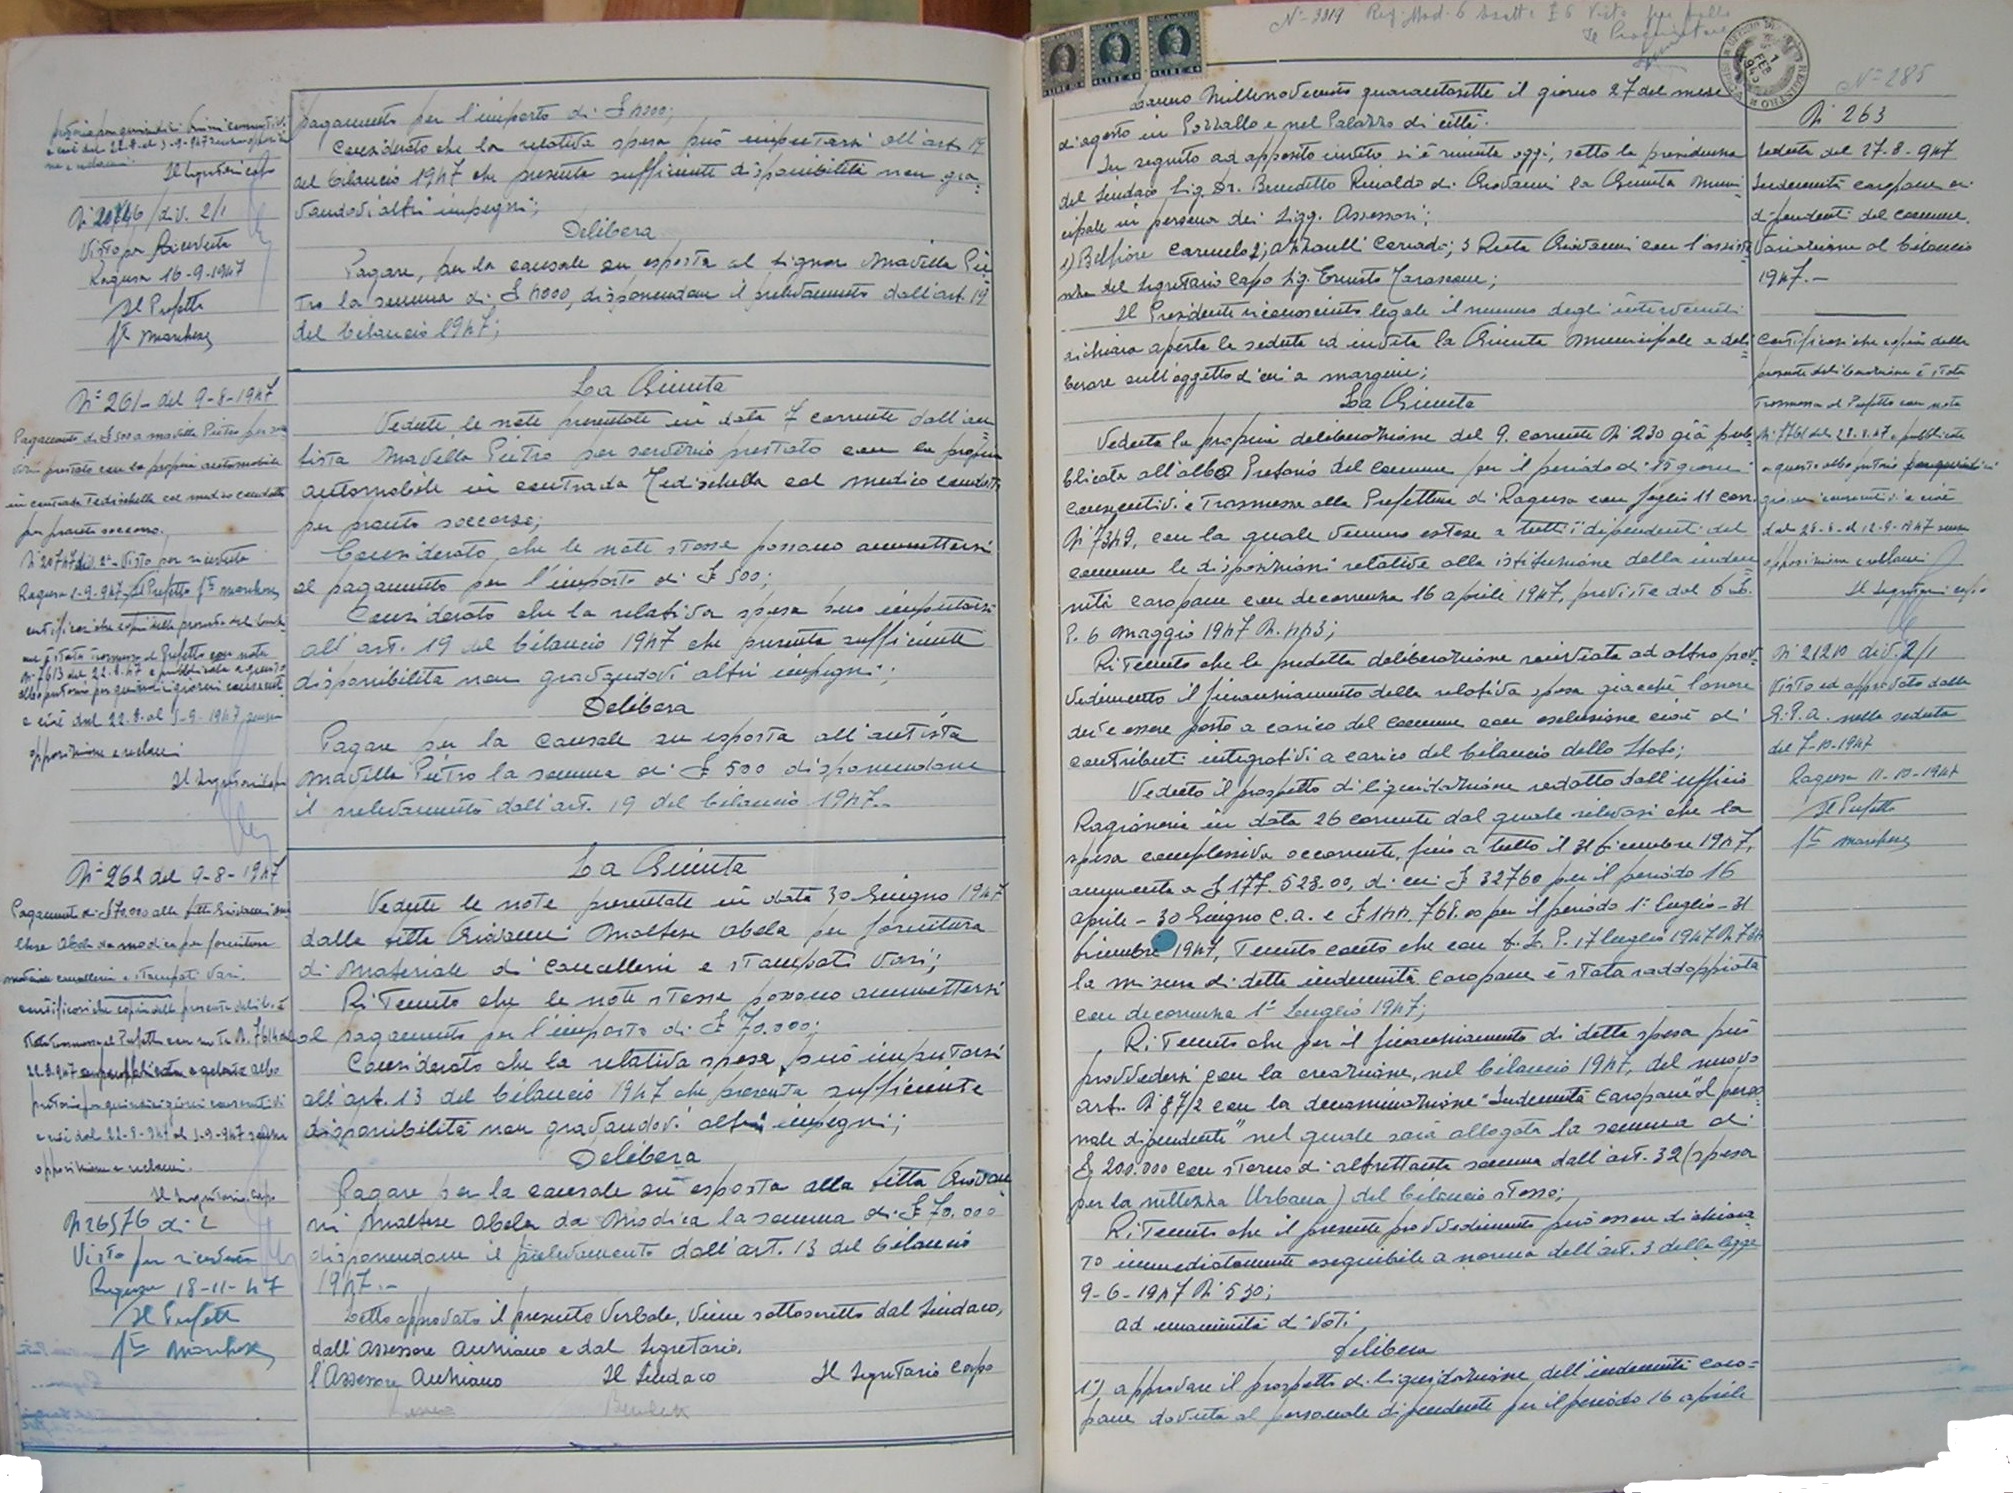 pagamento per l'importo di £ 4000;
Considerato che la relativa spesa può imputarsi all'art. 19
del bilancio 1947 che presenta sufficiente disponibilità non gra=
vandovi altri impegni;
Delibera
Pagare, per la causale su esposta al Signor Mavilla Pie
tro la somma di £ 4000, disponendone il prelevamento dall'art. 19
del bilancio 1947;
Il Segretario Capo
N 20746/div. 2/1
Visto per ricevuta
Ragusa 16-9-1947
Il Prefetto
fto Marchese
N° 261 - del 9-8-1947
Pagamento di £ 500 a Mavilla Pietro per ser
vizio prestato con la propria automobile
in contrada Zedischella col medico condotto
per pronto soccorso.
N 20747 div 2a - Visto per ricevuta
Ragusa 1-9-947 Il Prefetto fto Marchese
certificasi che copia della presente deliberazio
ne è stata trasmessa al Prefetto con nota
N. 7613 del 22.8.47 e pubblicata a questo
albo pretorio per quindici giorni consecutivi
e cioè dal 22.8. al 5-9-1947, senza
opposizione e reclami
Il Segretario Capo
La Giunta
Vedute le note presentate in data 7 corrente dall'au
tista Mavilla Pietro per servizio prestato con la propria
automobile in contrada Zedischella col medico condotto
per pronto soccorso;
Considerato che le note stesse possono ammettersi
al pagamento per l'importo di £ 500;
Considerato che la relativa spesa può imputarsi
all'art. 19 del bilancio 1947 che presenta sufficiente
disponibilità non gravandovi altri impegni;
Delibera
Pagare per la causale su esposta all'autista
Mavilla Pietro la somma di £ 500 disponendone
il prelevamento dall'art. 19 del bilancio 1947.-
N° 262 del 9-8-1947
Pagamento di £ 70.000 alla ditta Giovanni Mal
tese Abela da Modica per fornitura
materiale cancelleria e stampati vari.
certificasi che copia della presente delib. è
stata trasmessa al Prefetto con nota N. 7614 del
22.8.947 e pubblicata a questo albo
pretorio per quindici giorni consecutivi
e cioè dal 22-8-947 al 5-9-947 senza
opposizione e reclami.
Il Segretario Capo
N 26576 di. 2
Visto per ricevuta
Ragusa 18-11-47
Il Prefetto
fto Marchese
La Giunta
Vedute le note presentate in data 30 Giugno 1947
dalla ditta Giovanni Maltese Abela per fornitura
di materiale di cancelleria e stampati vari;
Ritenuto che le note stesse possono ammettersi
al pagamento per l'importo di £ 70.000;
Considerato che la relativa spesa può imputarsi
all'art. 13 del bilancio 1947 che presenta sufficiente
disponibilità non gravandovi altri impegni;
Delibera
Pagare per la causale su esposta alla ditta Giovan
ni Maltese Abela da Modica la somma di £ 70.000
disponendone il prelevamento dall'art. 13 del bilancio
1947.-
Letto approvato il presente Verbale, viene sottoscritto dal Sindaco,
dall'Assessore Anziano e dal Segretario.
l'Assessore Anziano Il Sindaco Il Segretario Capo
N° 3319 Reg. Mod. 6 Esatte £ 6 Visto per bollo
Il Procuratore
LIRE LIRE 4 LIRE 4
N° 285
L'anno Millenovecento quarantasette il giorno 27 del mese
di agosto in Pozzallo e nel Palazzo di città.
In seguito ad apposito invito si è riunita oggi, sotto la presidenza
del Sindaco Sig. Dr. Benedetto Rinaldo di Giovanni la Giunta Muni
cipale in persona dei Sigg. Assessori;
1) Belfiore Carmelo 2; Azzarelli Corrado; 3 Resta Giovanni con l'assiste
nza del Segretario Capo Sig. Ernesto Tarascone;
Il Presidente riconosciuto legale il numero degli intervenuti
dichiara aperta la seduta ed invita la Giunta Municipale a deli
berare sull'oggetto di cui a margine;
La Giunta
Veduta la propria deliberazione del 9. corrente N 230 già pub
blicata all'albo Pretorio del Comune per il periodo di 15 giorni
consecutivi e trasmessa alla Prefettura di Ragusa con foglio 11 corr.
N 7349, con la quale vennero estese a tutti i dipendenti del
comune le disposizioni relative alla istituzione della inden
nità caropane con decorrenza 16 aprile 1947, previste dal D.L.
P. 6 Maggio 1947 N. 443;
Ritenuto che la predetta deliberazione rinviata ad altro prov=
vedimento il finanziamento della relativa spesa giacchè l'onere
deve essere posto a carico del Comune con esclusione cioè di
contributi integrativi a carico del bilancio dello Stato;
Veduto il prospetto di liquidazione redatto dall'ufficio
Ragioneria in data 26 corrente dal quale rilevasi che la
spesa complessiva occorrente, fino a tutto il 31 Dicembre 1947,
ammonta a £ 177.528.00, di cui £ 32760 per il periodo 16
Aprile - 30 Giugno c.a. e £ 144.768.00 per il periodo 1° Luglio - 31
Dicembre 1947, Tenuto conto che con D.L.P. 17 luglio 1947 N 744
la misura di detta indennità caropane è stata raddoppiata
con decorrenza 1° Luglio 1947;
Ritenuto che per il finanziamento di detta spesa può
provvedersi con la creazione, nel bilancio 1947, del nuovo
art. N 87/2 con la denominazione "Indennità Caropane al perso=
nale dipendente" nel quale sarà allogata la somma di
£ 200.000 con storno di altrettanta somma dall'art. 32 (spesa
per la nettezza Urbana) del bilancio stesso;
Ritenuto che il presente provvedimento può essere dichiara
to immediatamente eseguibile a norma dell'art. 3 della legge
9-6-1947 N° 530;
Ad unanimità di voti
Delibera
1°) approvare il prospetto di liquidazione dell'indennità caro=
pane dovuta al personale dipendente per il periodo 16 aprile
N 263
Seduta del 27-8-947
Indennità caropane ai
dipendenti del comune.
Variazione al bilancio
1947.-
Certificasi che copia della
presente deliberazione è stata
trasmessa al Prefetto con nota
N. 7761 del 28.8.47 e pubblicata
a questo albo pretorio per quindici
giorni consecutivi e cioè
dal 28-8- al 12-9-1947 senza
opposizione e reclami
Il Segretario Capo
N° 21210 div. 2/1
Visto ed approvato dalla
G.P.A. nella seduta
del 7-10-1947
Ragusa 11-10-1947
Il Prefetto
fto Marchese